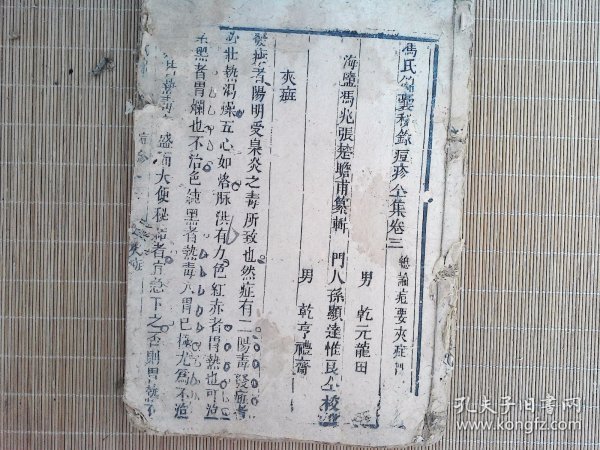 馮氏錦囊秘錄痘疹全集卷三 總論痘要夾症門
海鹽馮兆張楚瞻甫纂輯 門人孫顯達惟良仝校
男 乾元龍田
男 乾亨禮齋
夾癍
癍者陽明受臭炎之毒所致也然症有二陽毒發癍者
必壯熱渴燥五心如烙脉洪有力色紅赤者胃熱也可治
黑者胃爛也不治色純黑者熱毒入胃已極尤為不治
熱毒 盛而大便秘結者宜急下之否則胃熱不
孔夫子旧书网